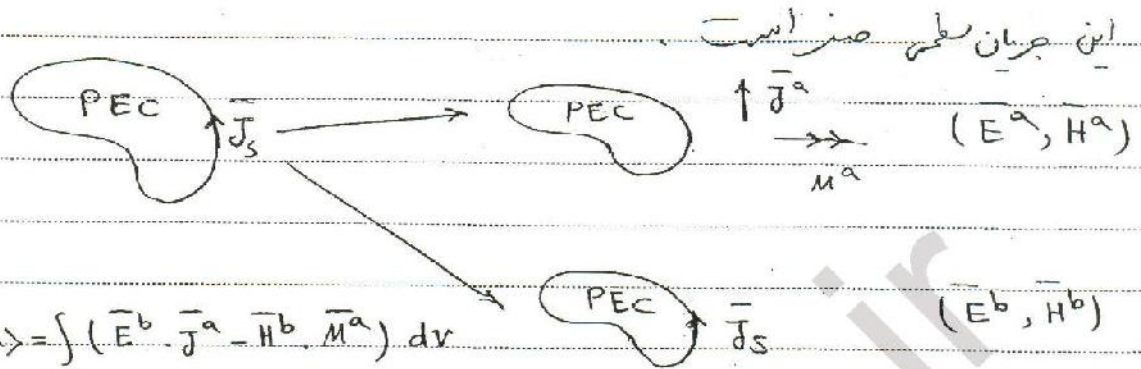 این جریان سطحی صفر است.
PEC J̄s PEC J̄ᵃ (Ēᵃ, H̄ᵃ)
Mᵃ
PEC J̄s (Ēᵇ, H̄ᵇ)
>=∫(Ēᵇ.J̄ᵃ-H̄ᵇ.M̄ᵃ) dv